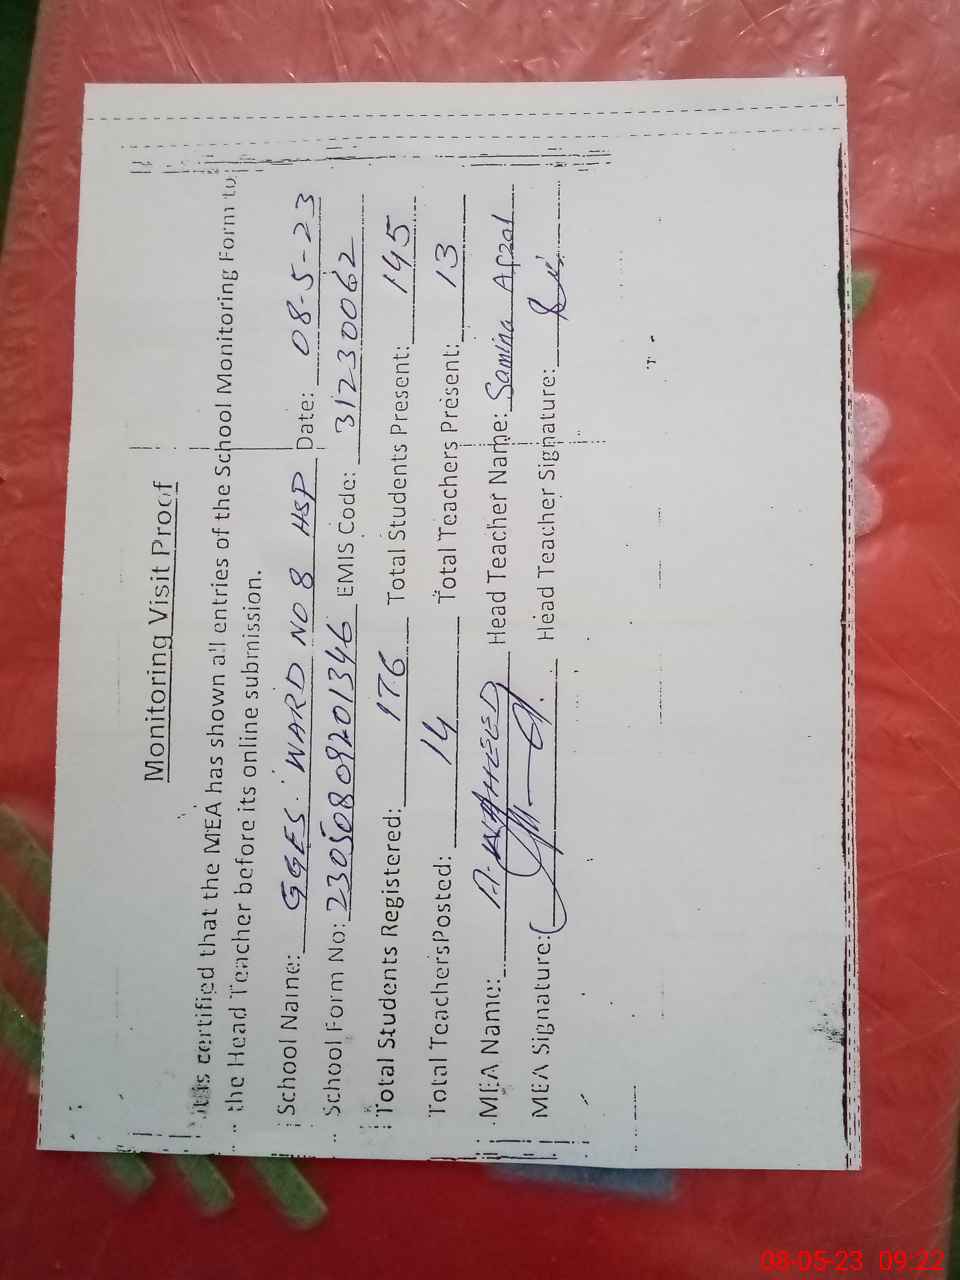 Monitoring Visit Proof
It is certified that the MEA has shown all entries of the School Monitoring Form to
the Head Teacher before its online submission.
School Name: GGES. WARD NO 8 HSP Date: 08-5-23
School Form No: 23050809201346 EMIS Code: 31230062
Total Students Registered: 176 Total Students Present: 145
Total TeachersPosted: 14 Total Teachers Present: 13
MEA Name: A. WAHEED Head Teacher Name: Samina Afzal
MEA Signature: Head Teacher Signature:
08-05-23 09:22